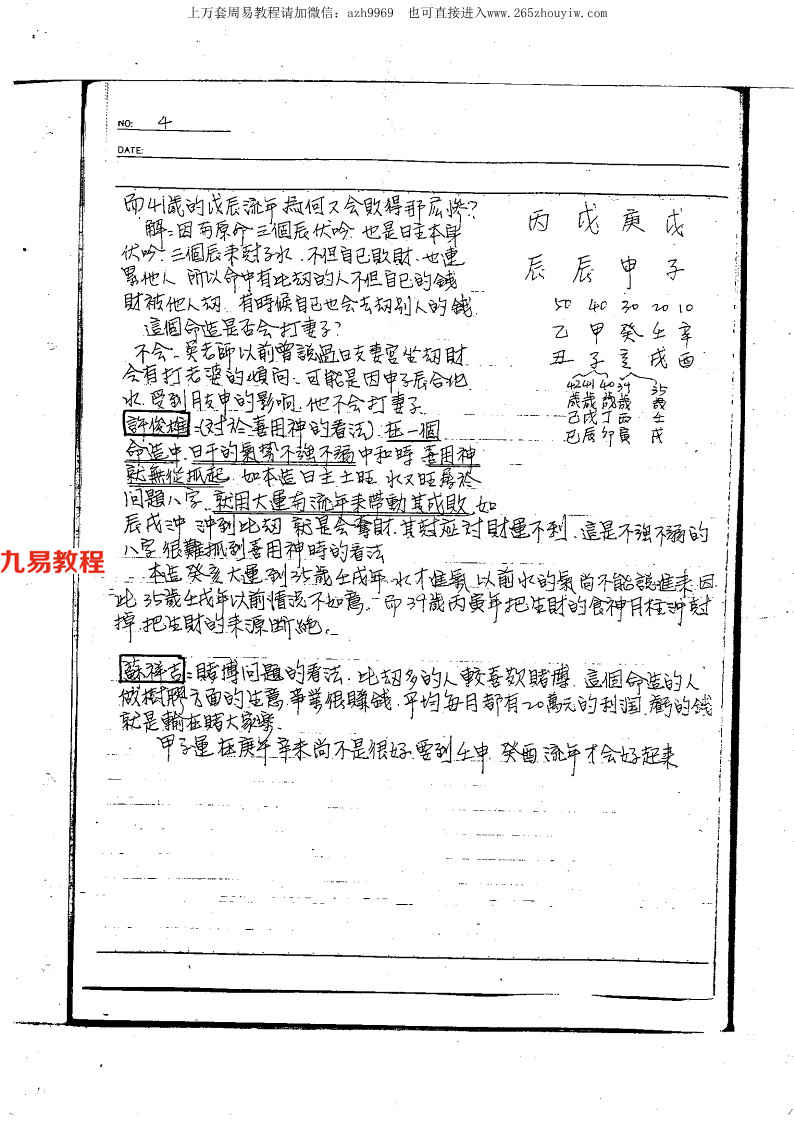 上万套周易教程请加微信：azh9969 也可直接进入www.265zhouyiw.com
NO: 4
DATE:
而41歲的戊辰流年為何又会敗得那広慘？
解：因為原命三個辰伏吟 也是日主本身
伏吟 三個辰來尅子水 不但自己敗財 也連
累他人 所以命中有比劫的人不但自己的錢
財被他人劫 有時候自己也会去劫別人的錢
這個命造是否会打妻子？
不会 吳老師以前曾説過日支妻宮坐劫財
会有打老婆的傾向 可能是因申子辰合化
水 受到月支申的影响 他不会打妻子
許俊雄：(对於喜用神的看法) 在一個
命造中 日干的氣勢不強不弱 中和時 喜用神
就無從抓起 如本造日主土旺 水又旺 屬於
问題八字 就用大運与流年來帶動其成敗 如
辰戌冲 冲到比劫 就是会奪財 其对应对財運不利 這是不強不弱的
八字很難抓到喜用神時的看法
九易教程
本造癸亥大運到35歲壬戌年 水才進氣 以前水的氣尚不能説進來 因
此35歲壬戌年以前情況不如意 而39歲丙寅年把生財的食神月柱冲尅
掉 把生財的來源斷絶
蘇祥吉：賭博问題的看法 比劫多的人較喜歡賭博 這個命造的人
做樹膠方面的生意 事業很賺錢 平均每月都有20萬元的利润 虧的錢
就是輸在賭大家樂
甲子運在庚午 辛未尚不是很好 要到壬申 癸酉流年才会好起來
丙 戊 庚 戊
辰 辰 申 子
50 40 30 20 10
乙 甲 癸 壬 辛
丑 子 亥 戌 酉
42 41 40 39 35
歲 歲 歲 歲 歲
己 戊 丁 丙 壬
巳 辰 卯 寅 戌